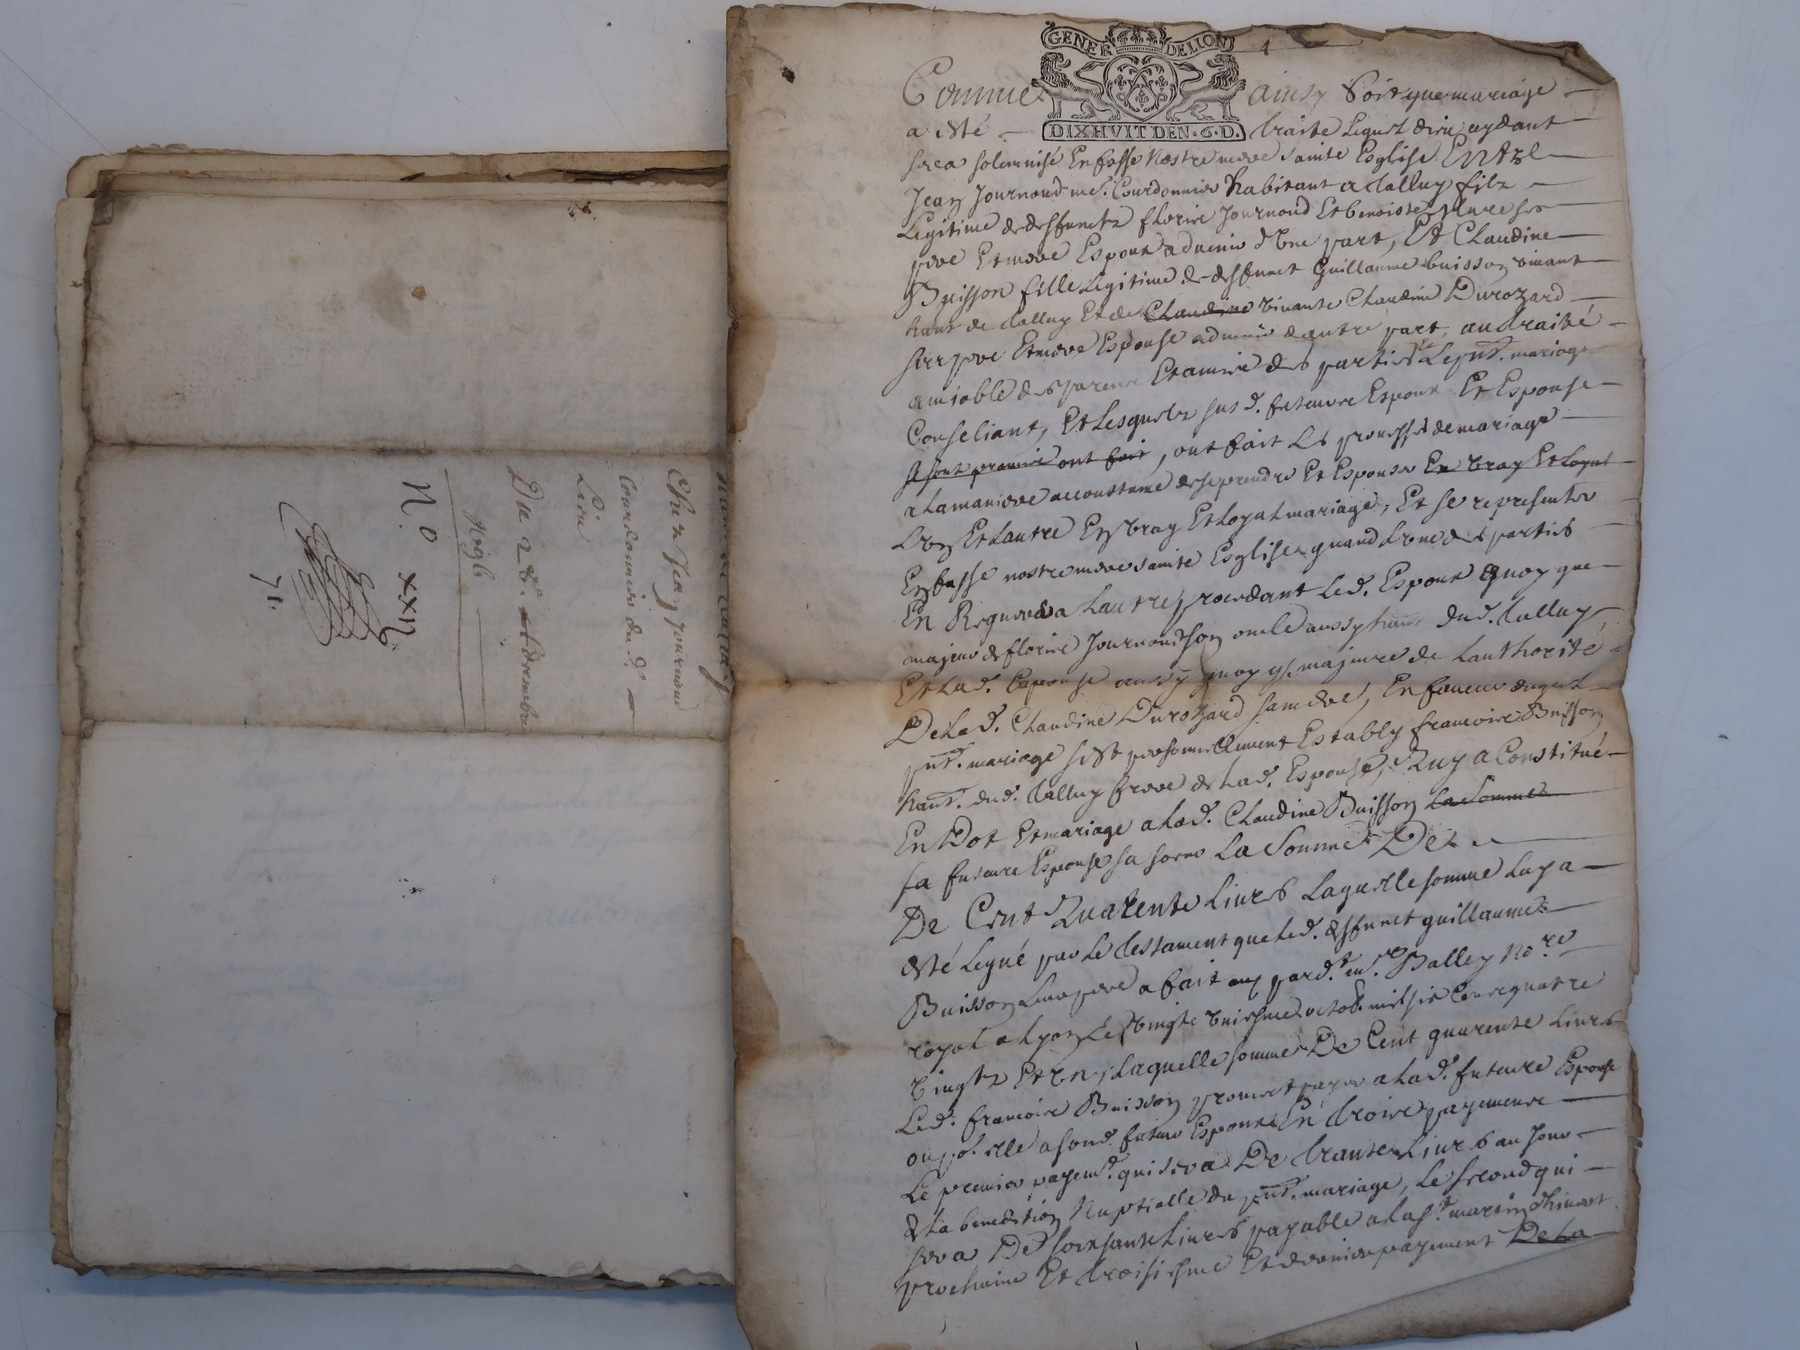 GENER DE LION
DIXHVIT DEN. 6. D.
4
Comme ainsy Soit que mariage
a esté traite Lequel dieu aydant
sera solemnisé En fasse Nostre mere sainte Esglise Entre
Jean Journoud me. Courdonnier habitant a Talluy filz
Legitime de deffunctz florie Journoud Et benoiste
pere Et mere Espoux advenir dUne part, Et Claudine
Buisson fille Legitime de deffunct Guillaume buisson vivant
hant de Talluy Et de Claudine vivante Claudine Durozard
ses pere Et mere Espouse advenir dautre part, au traité
amiable des parens Et amis des parties Le pnt. mariage
Conseliant, Et Lesquelz sus d. futeure Espoux Et Espouse
se sont promis ont fait, ont fait Les promesses de mariage
a La maniere accoustume de se prendre Et Espouser En vray Et Loyal
Lvn Et Lautre En vray Et Loyal mariage, Et se representer
En fasse nostre mere sainte Esglise quand Lvne des parties
En Requerera Lautre, procedant Led. Espoux quoy que
majeur de florie Journoud son oncle aussy hant dud. Talluy
Et Lad. Espouse aussy quoy q. majeure de Lauthorité
De Lad. Claudine Durozard sa mere, En faveur duquel
pnt. mariage sest personnellement Estably francois Buisson
hant. dud. Talluy frere de Lad. Espouse, Quy a Constitué
En Dot Et mariage a Lad. Claudine Buisson La Somme
sa futeure Espouse sa soeur La Somme De
De Cent Quarente Livres Laquelle somme Luy a
esté Legué par Le Testament que Led. deffunct guillaume
Buisson Leur pere a fait par d. me. Balley No.re
royal a Lyon Le vingte huictiesme octob. mil six Cent quatre
vingtz Et vn, Laquelle somme De Cent quarente Livres
Led. francois Buisson promet payer a Lad. futeure Espouse
ou p. elle a sond. futeur Espoux En trois payemens
Le premier payemt. qui sera De trante Livres au Jour
de La benedition Nuptialle du pnt. mariage, Le second qui
sera De soixante Livres payable a La st. martin dhiver
prochaine Et troisiesme Et dernier payement De La
Chez Jean Journoud
Courdonnier du d.
Lieu
Du 28e.
N.o XXII
71.